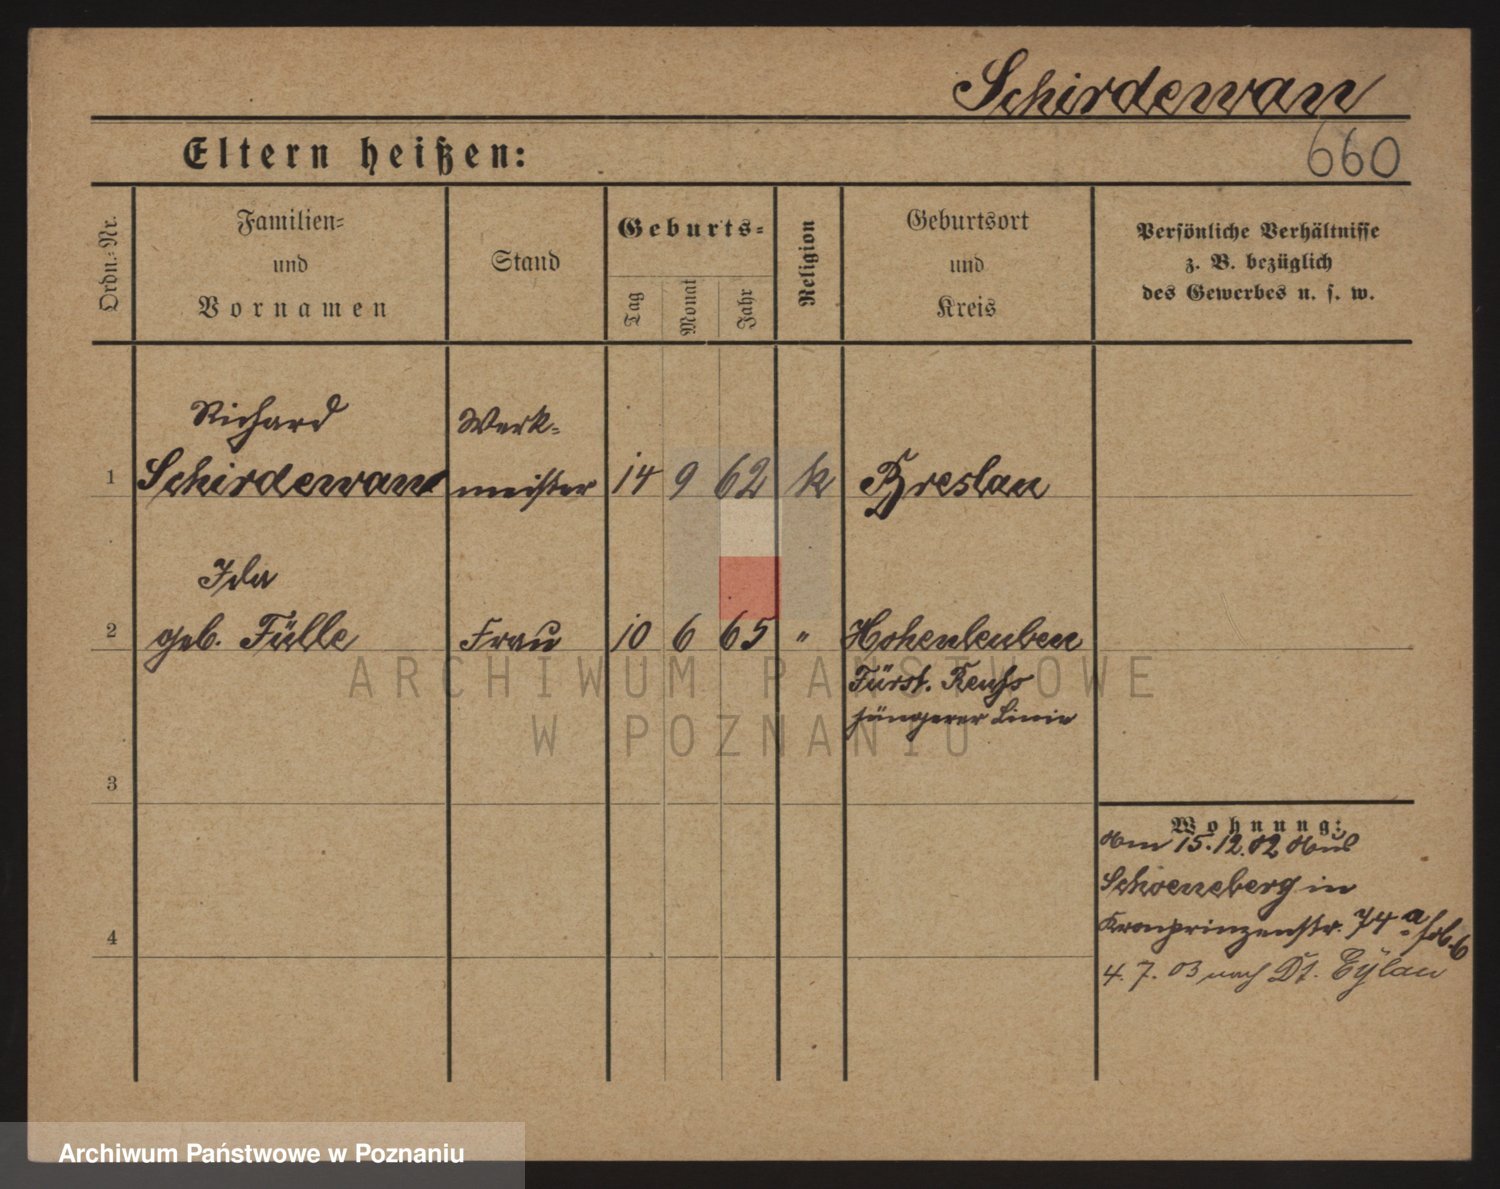 Schirdewan
Eltern heißen:
660
Ordn.-Nr.
Familien-
und
Vornamen
Stand
Geburts-
Tag
Monat
Jahr
Religion
Geburtsort
und
Kreis
Persönliche Verhältnisse
z. B. bezüglich
des Gewerbes u. s. w.
Richard
Werk-
1 Schirdewan meister 14 9 62 k Breslau
Ida
2 geb. Fülle Frau 10 6 65 " Hohenleuben
Fürst. Reuss
jüngerer Linie
ARCHIWUM PAŃSTWOWE
W POZNANIU
3
Wohnung:
15.12.02 Aus
Schoeneberg in
4 Kronprinzenstr. 74 a
4. 7. 03 nach Dt. Eylau
Archiwum Państwowe w Poznaniu